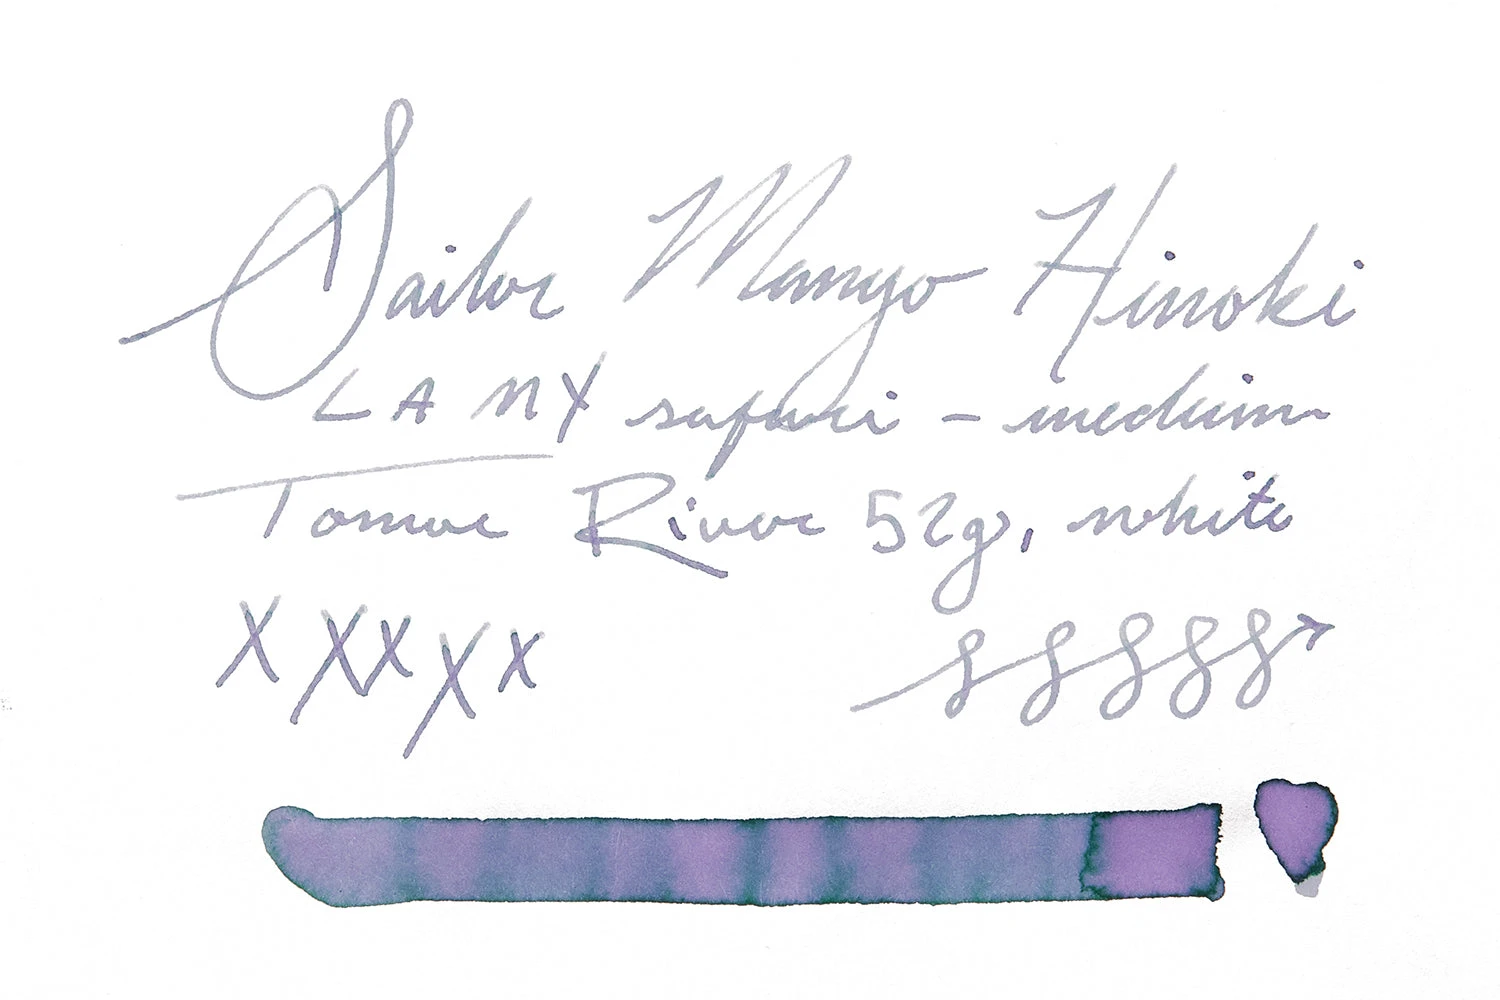 Sailor Manyo Hinoki
LAMY safari - medium
Tomoe River 52g, white
X X x X x